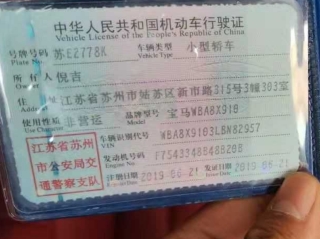 中华人民共和国机动车行驶证
Vehicle License of the People's Republic of China
号牌号码 苏E2778K 车辆类型 小型轿车
Plate No. Vehicle Type
所有人 倪吉
Owner
住址 江苏省苏州市姑苏区新市路315号3幢303室
Address
使用性质 非营运 品牌型号 宝马WBA8X910
Use Character Model
江苏省苏州市公安局交通警察支队
车辆识别代号
VIN
发动机号码
Engine No.
注册日期 2019-06-21 发证日期 2019-06-21